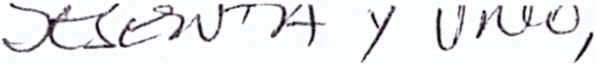 SESENTA Y UNO,